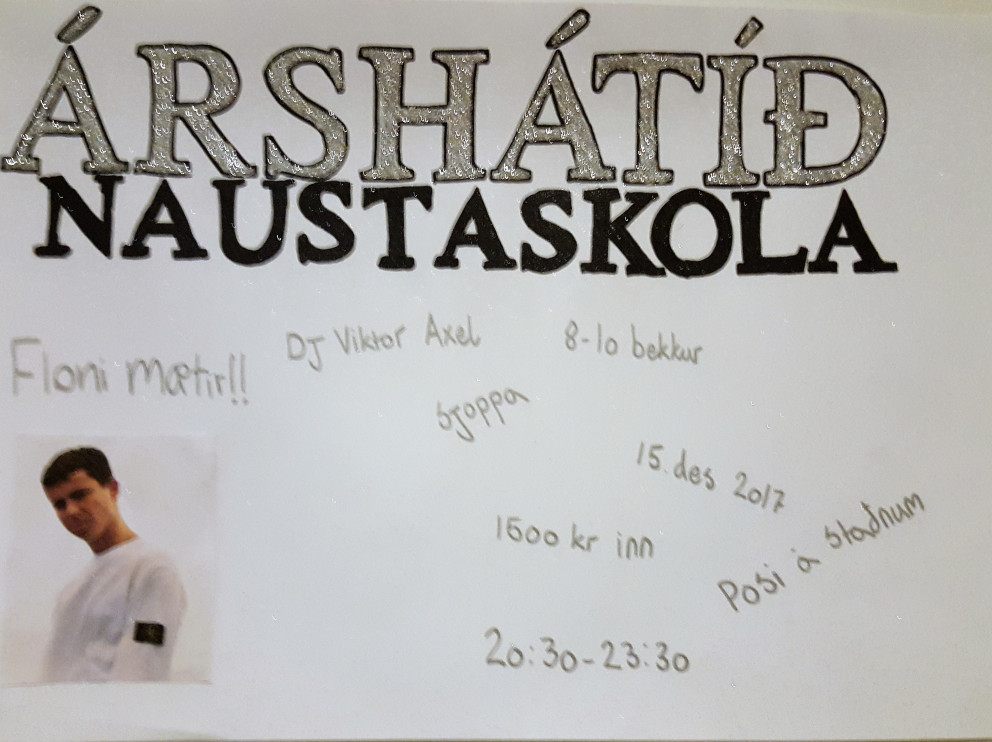 ÁRSHÁTÍÐ
NAUSTASKOLA
Floni mætir!!
DJ Viktor Axel
8-10 bekkur
sjoppa
15. des 2017
1500 kr inn
Posi á staðnum
20:30-23:30